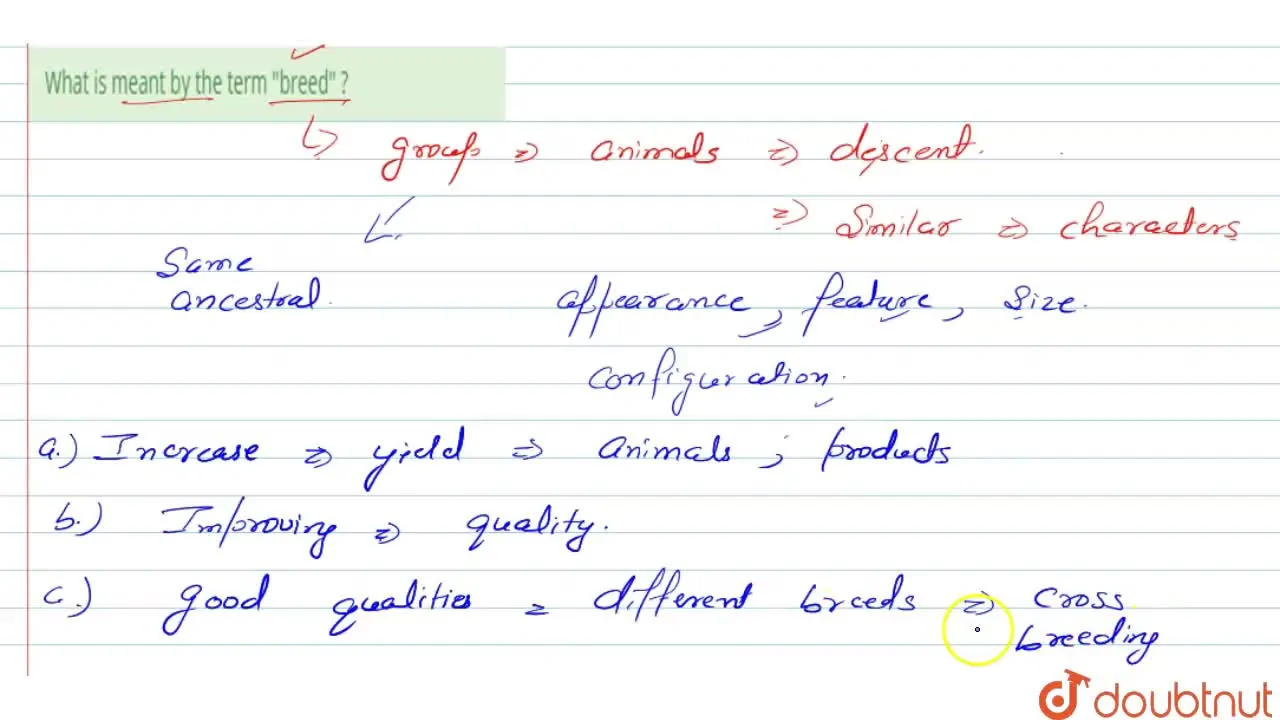 What is meant by the term "breed" ?
↳ group ⇒ animals ⇒ descent.
⇒ Similar ⇒ characters
Same
ancestral.
appearance, feature, size.
configuration.
a.) Increase ⇒ yield ⇒ animals, products
b.) Improving ⇒ quality.
c.) good qualities = different breeds ⇒ cross
breeding
doubtnut